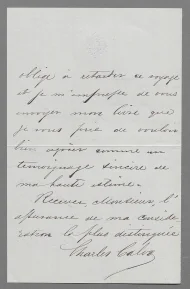 oblige à retarder ce voyage
et je m'empresse de vous
envoyer mon livre que
je vous prie de vouloir
bien agréer comme un
témoignage sincère de
ma haute estime.
Recevez Monsieur, l'
assurance de ma considé
ration la plus distinguée
Charles Calvo